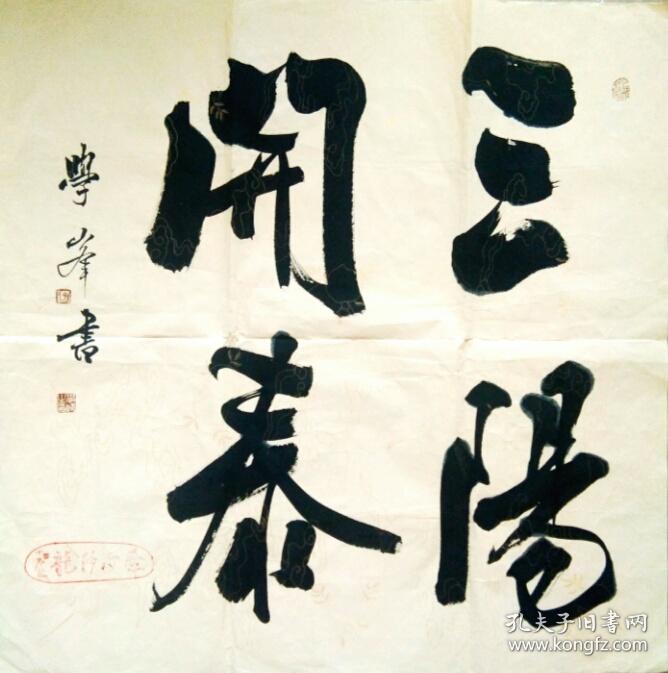 三陽
開泰
學峰書
孔夫子旧書网
www.kongfz.com